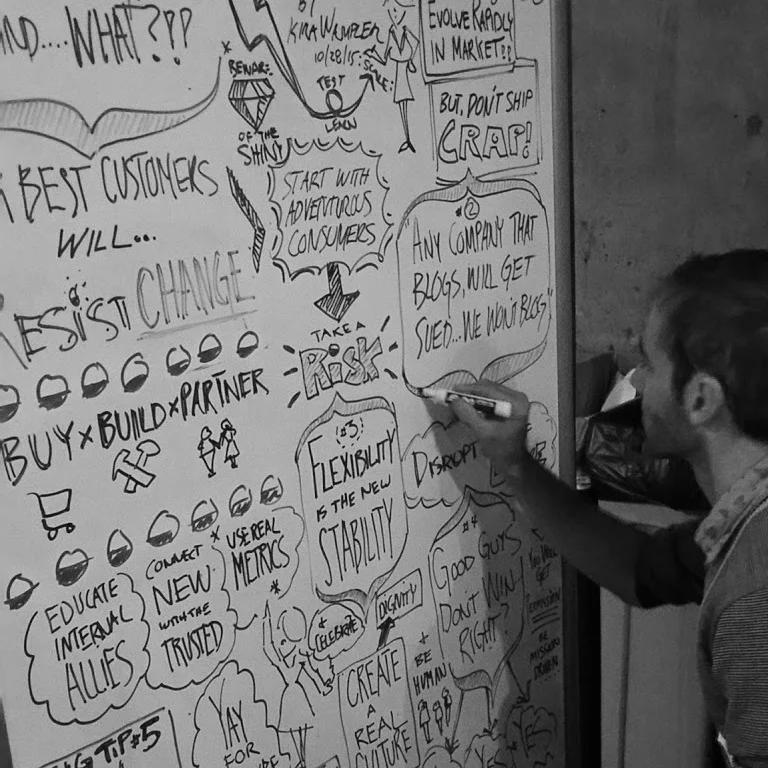 AND....WHAT???
BEST CUSTOMERS
WILL...
RESIST CHANGE
BUY x BUILD x PARTNER
EDUCATE
INTERNAL
ALLIES
CONNECT
NEW
WITH THE
TRUSTED
USE REAL
METRICS
TIP #5
YAY
FOR
BY
KIRA WAMPLER
10/28/15
TEST
LEARN
SCALE
BEWARE
OF THE
SHINY
START WITH
ADVENTUROUS
CONSUMERS
TAKE A
RISK
#3
FLEXIBILITY
IS THE NEW
STABILITY
+
CELEBRATE
DIGNITY
CREATE
A
REAL
CULTURE
+
BE
HUMAN
EVOLVE RAPIDLY
IN MARKET??
BUT, DON'T SHIP
CRAP!
#2
ANY COMPANY THAT
BLOGS, WILL GET
SUED...WE WON'T BLOG"
DISRUPT
#4
GOOD GUYS
DON'T WIN
RIGHT?
YOU WILL
GET
BE
MISSION
DRIVEN
YES
YES